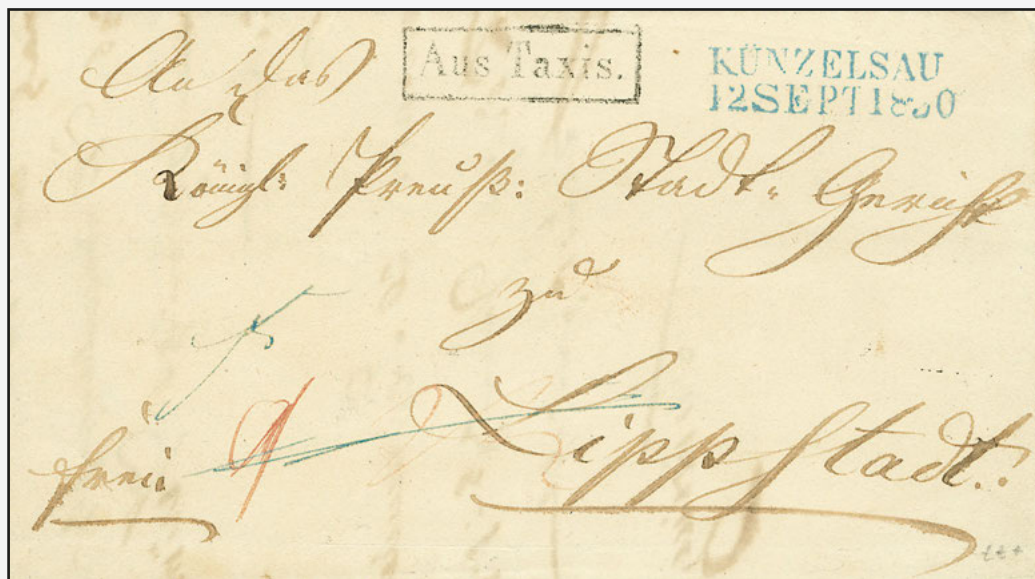 Aus Taxis.
KÜNZELSAU
12 SEPT 1850
An das
Königl: Preuß: Stadt-Gericht
zu
Lippstadt.
frei